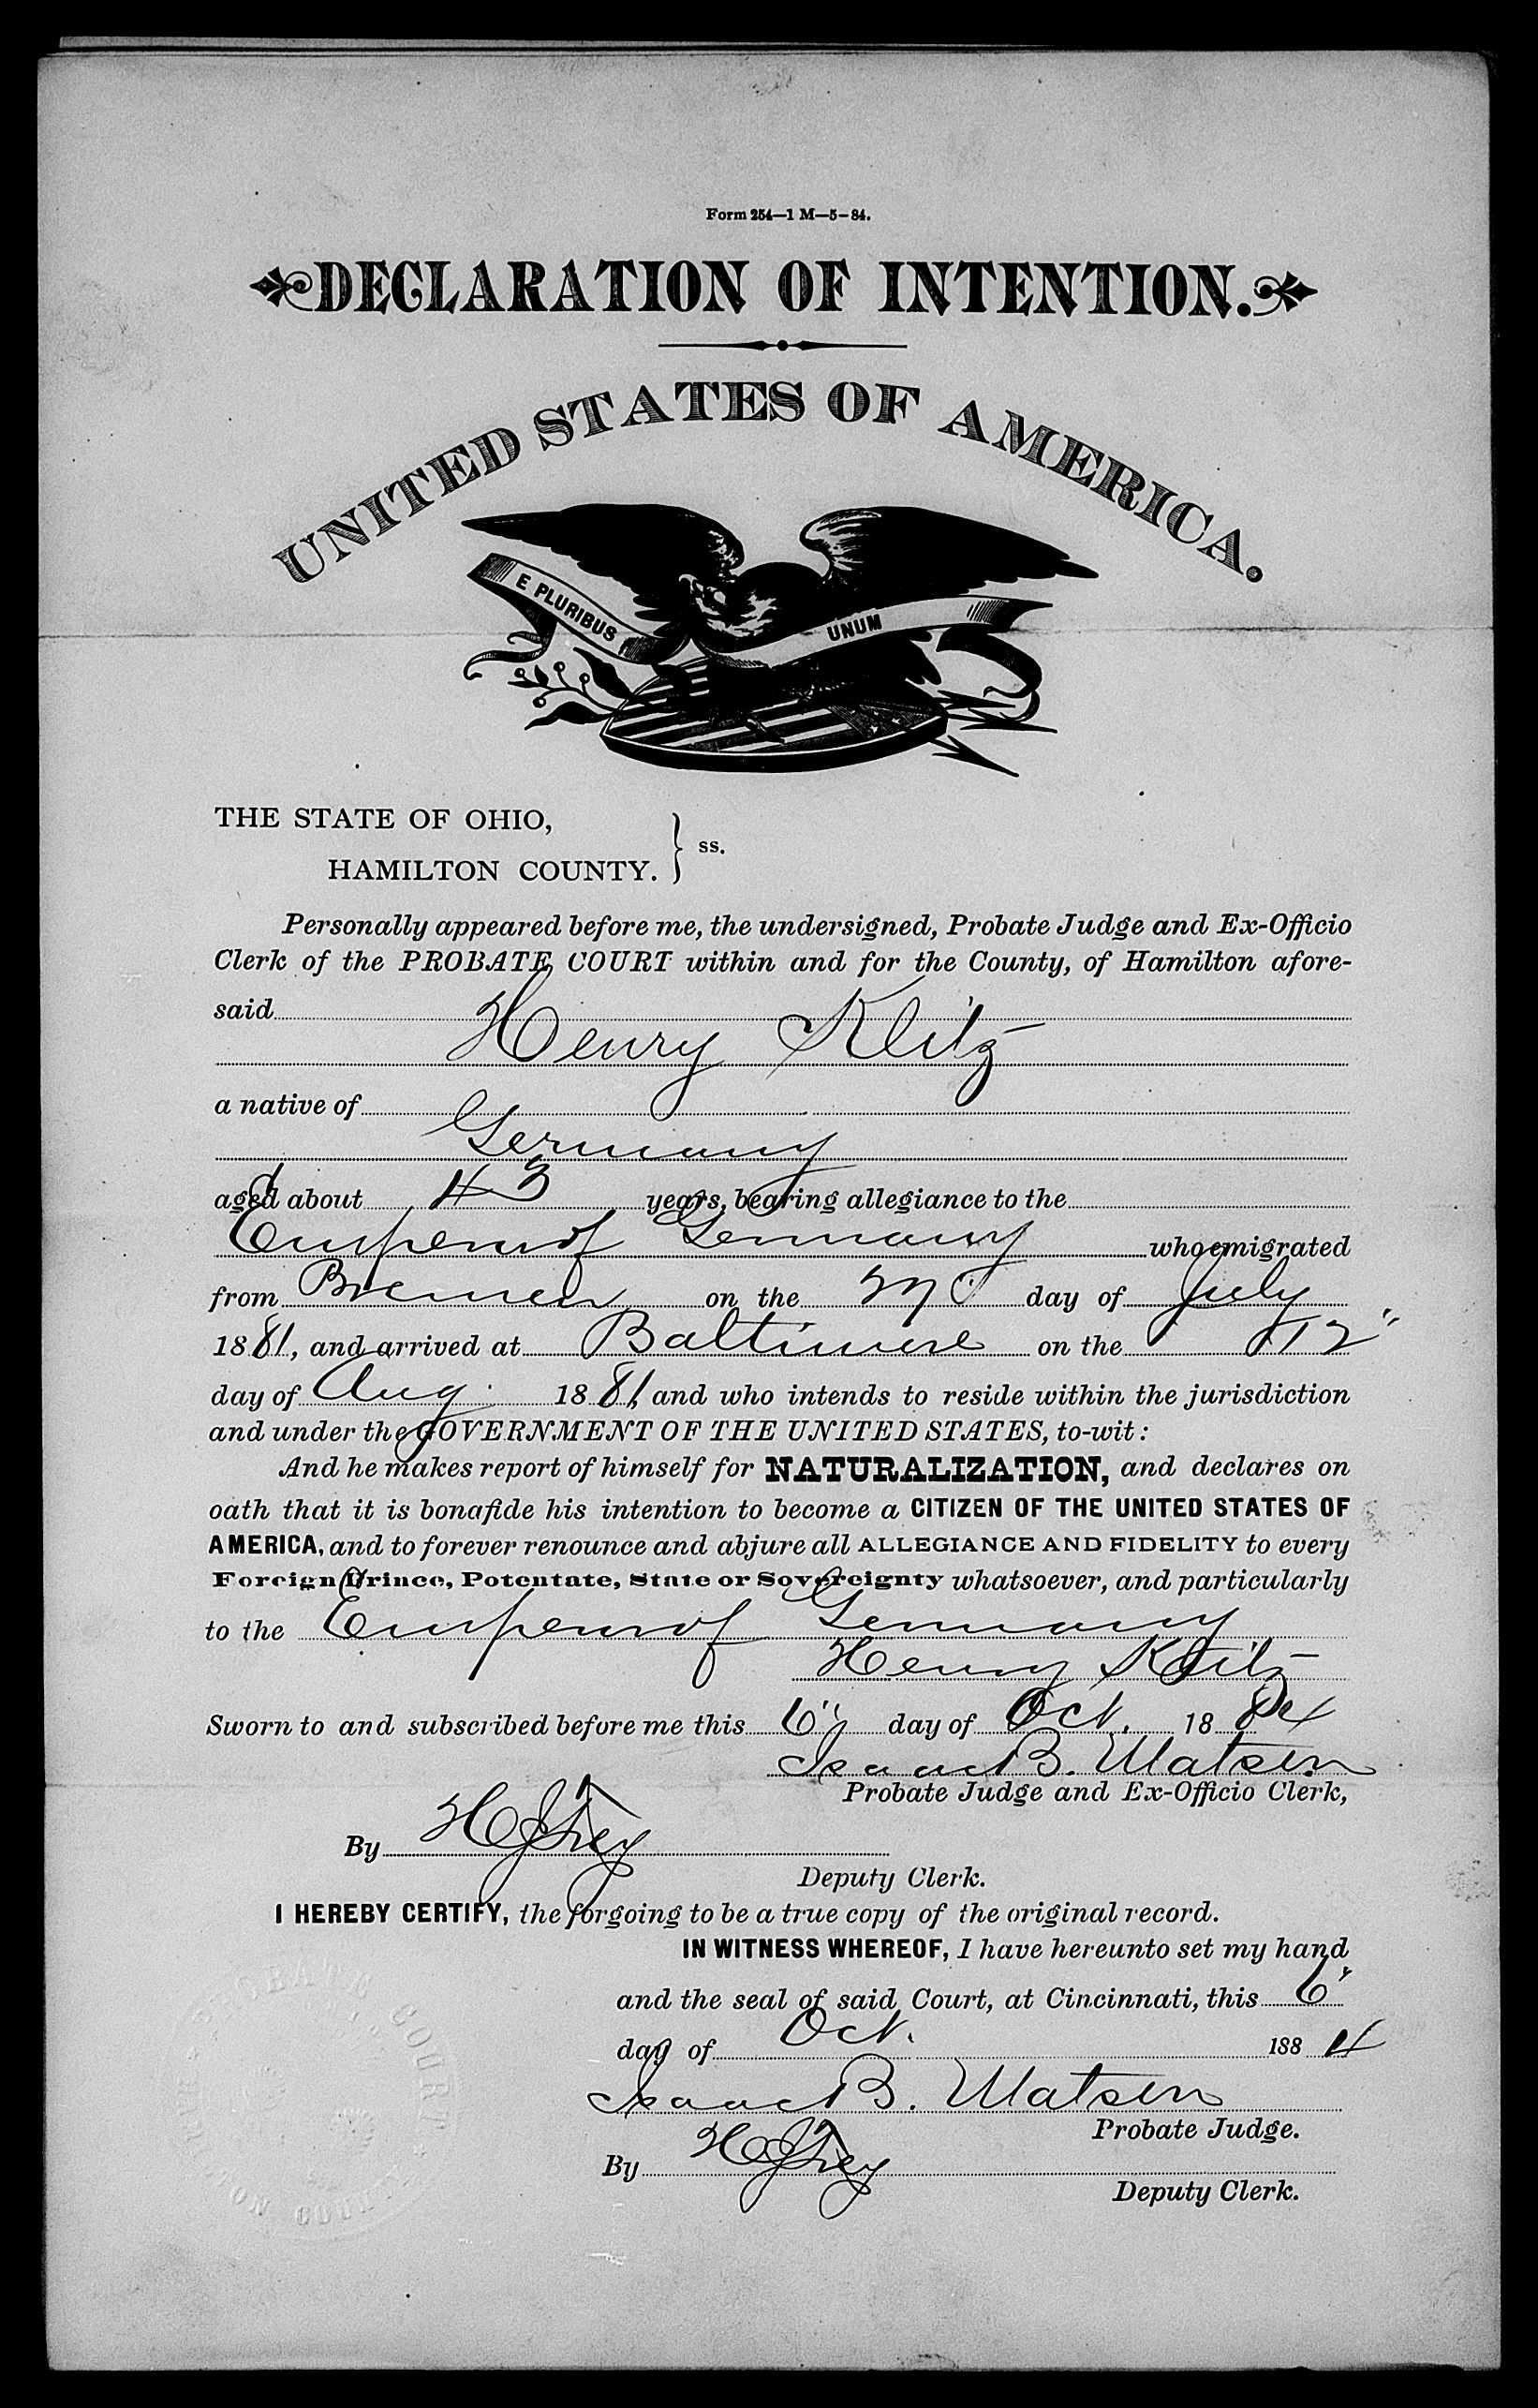 Form 254—1 M—5—84.
DECLARATION OF INTENTION.
UNITED STATES OF AMERICA.
E PLURIBUS UNUM
THE STATE OF OHIO,
HAMILTON COUNTY. } ss.
Personally appeared before me, the undersigned, Probate Judge and Ex-Officio
Clerk of the PROBATE COURT within and for the County, of Hamilton afore-
said
Henry Klitz
a native of
Germany
aged about 43 years, bearing allegiance to the
Emperor of Germany who emigrated
from Bremen on the day of July
1881, and arrived at Baltimore on the 12"
day of Aug. 1881, and who intends to reside within the jurisdiction
and under the GOVERNMENT OF THE UNITED STATES, to-wit:
And he makes report of himself for NATURALIZATION, and declares on
oath that it is bonafide his intention to become a CITIZEN OF THE UNITED STATES OF
AMERICA, and to forever renounce and abjure all ALLEGIANCE AND FIDELITY to every
Foreign Prince, Potentate, State or Sovereignty whatsoever, and particularly
to the Emperor of Germany
Henry Klitz
Sworn to and subscribed before me this 6" day of Oct. 1884
Isaac B. Matson
Probate Judge and Ex-Officio Clerk,
By
Deputy Clerk.
I HEREBY CERTIFY, the forgoing to be a true copy of the original record.
IN WITNESS WHEREOF, I have hereunto set my hand
and the seal of said Court, at Cincinnati, this 6"
day of Oct. 1884
Isaac B. Matson
Probate Judge.
By
Deputy Clerk.